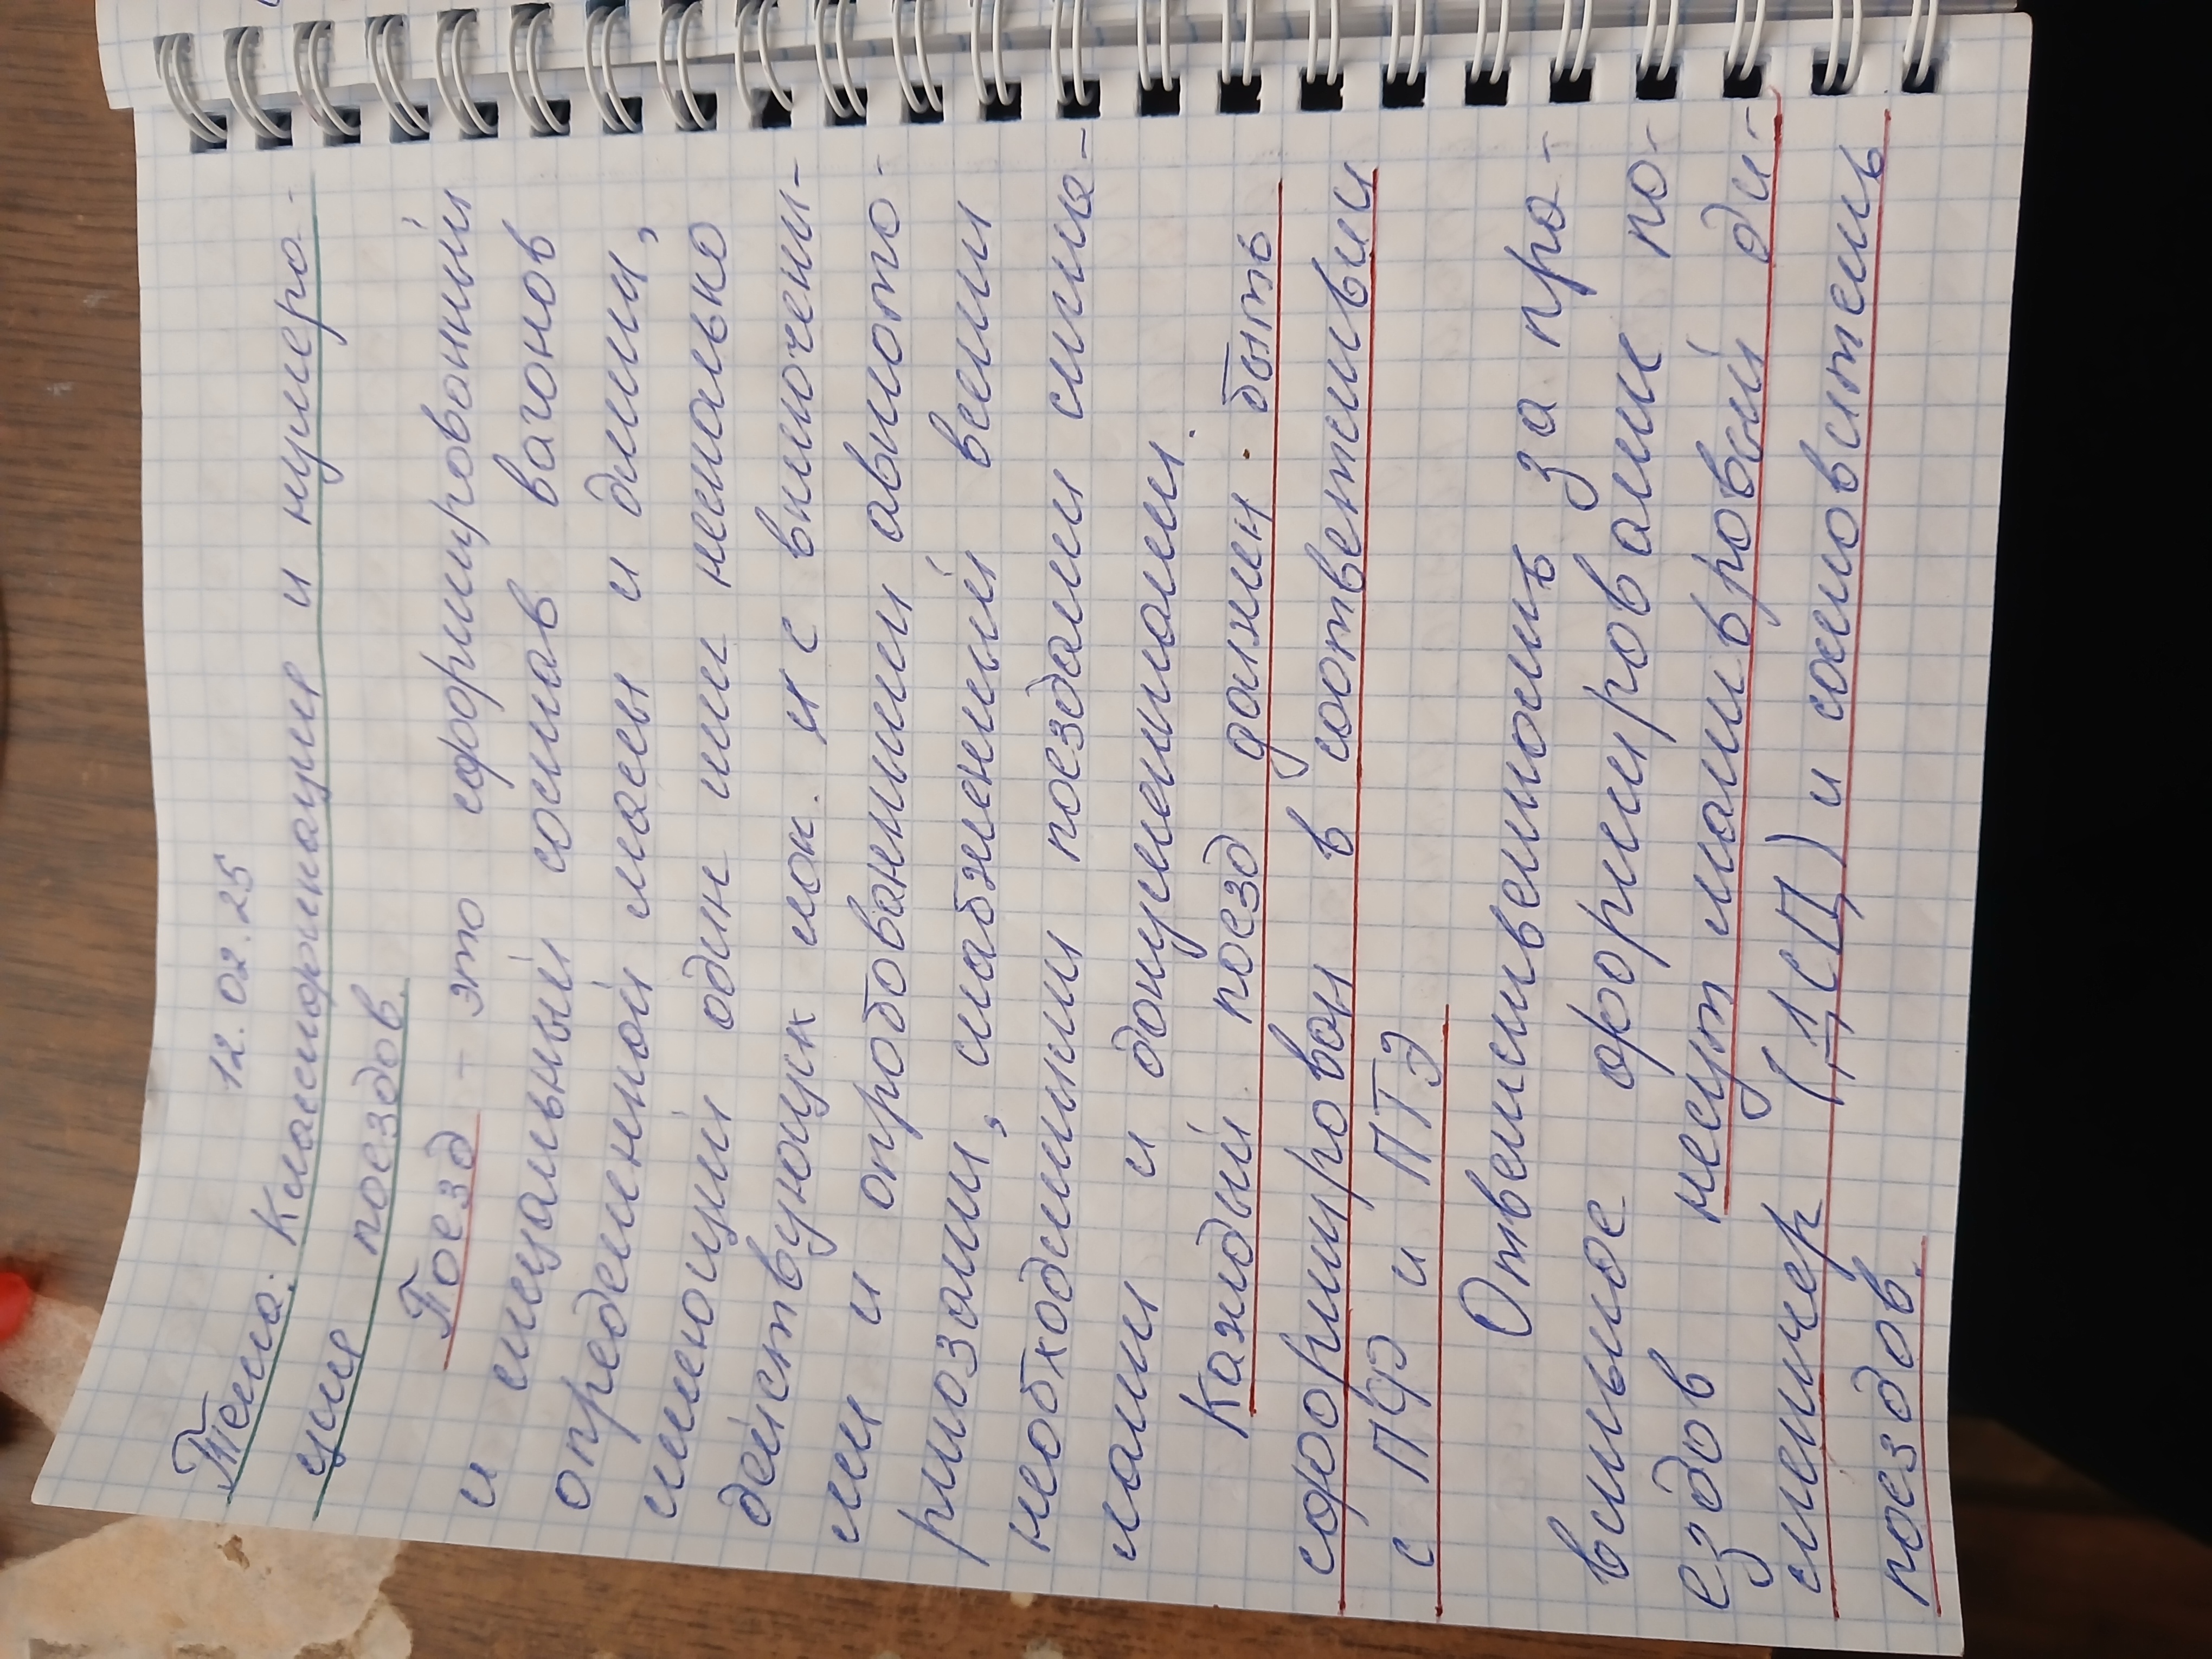 12.02.25
Тема: Классификация и нумера-
ция поездов.
Поезд - это сформированный
и сцепленный состав вагонов
определенной массы и длины,
имеющий один или несколько
действующих лок. и с включенны-
ми и опробованными автото-
рмозами, снабженный всеми
необходимыми поездными сигна-
лами и документами.
Каждый поезд должен быть
сформирован в соответствии
с ПФ и ПТЭ
Ответственность за пра-
вильное формирование по-
ездов несут маневровый ди-
спетчер (ДСЦ) и составитель
поездов.